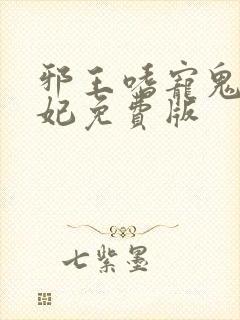 邪王嗜寵鬼
妃免費版
七紫墨